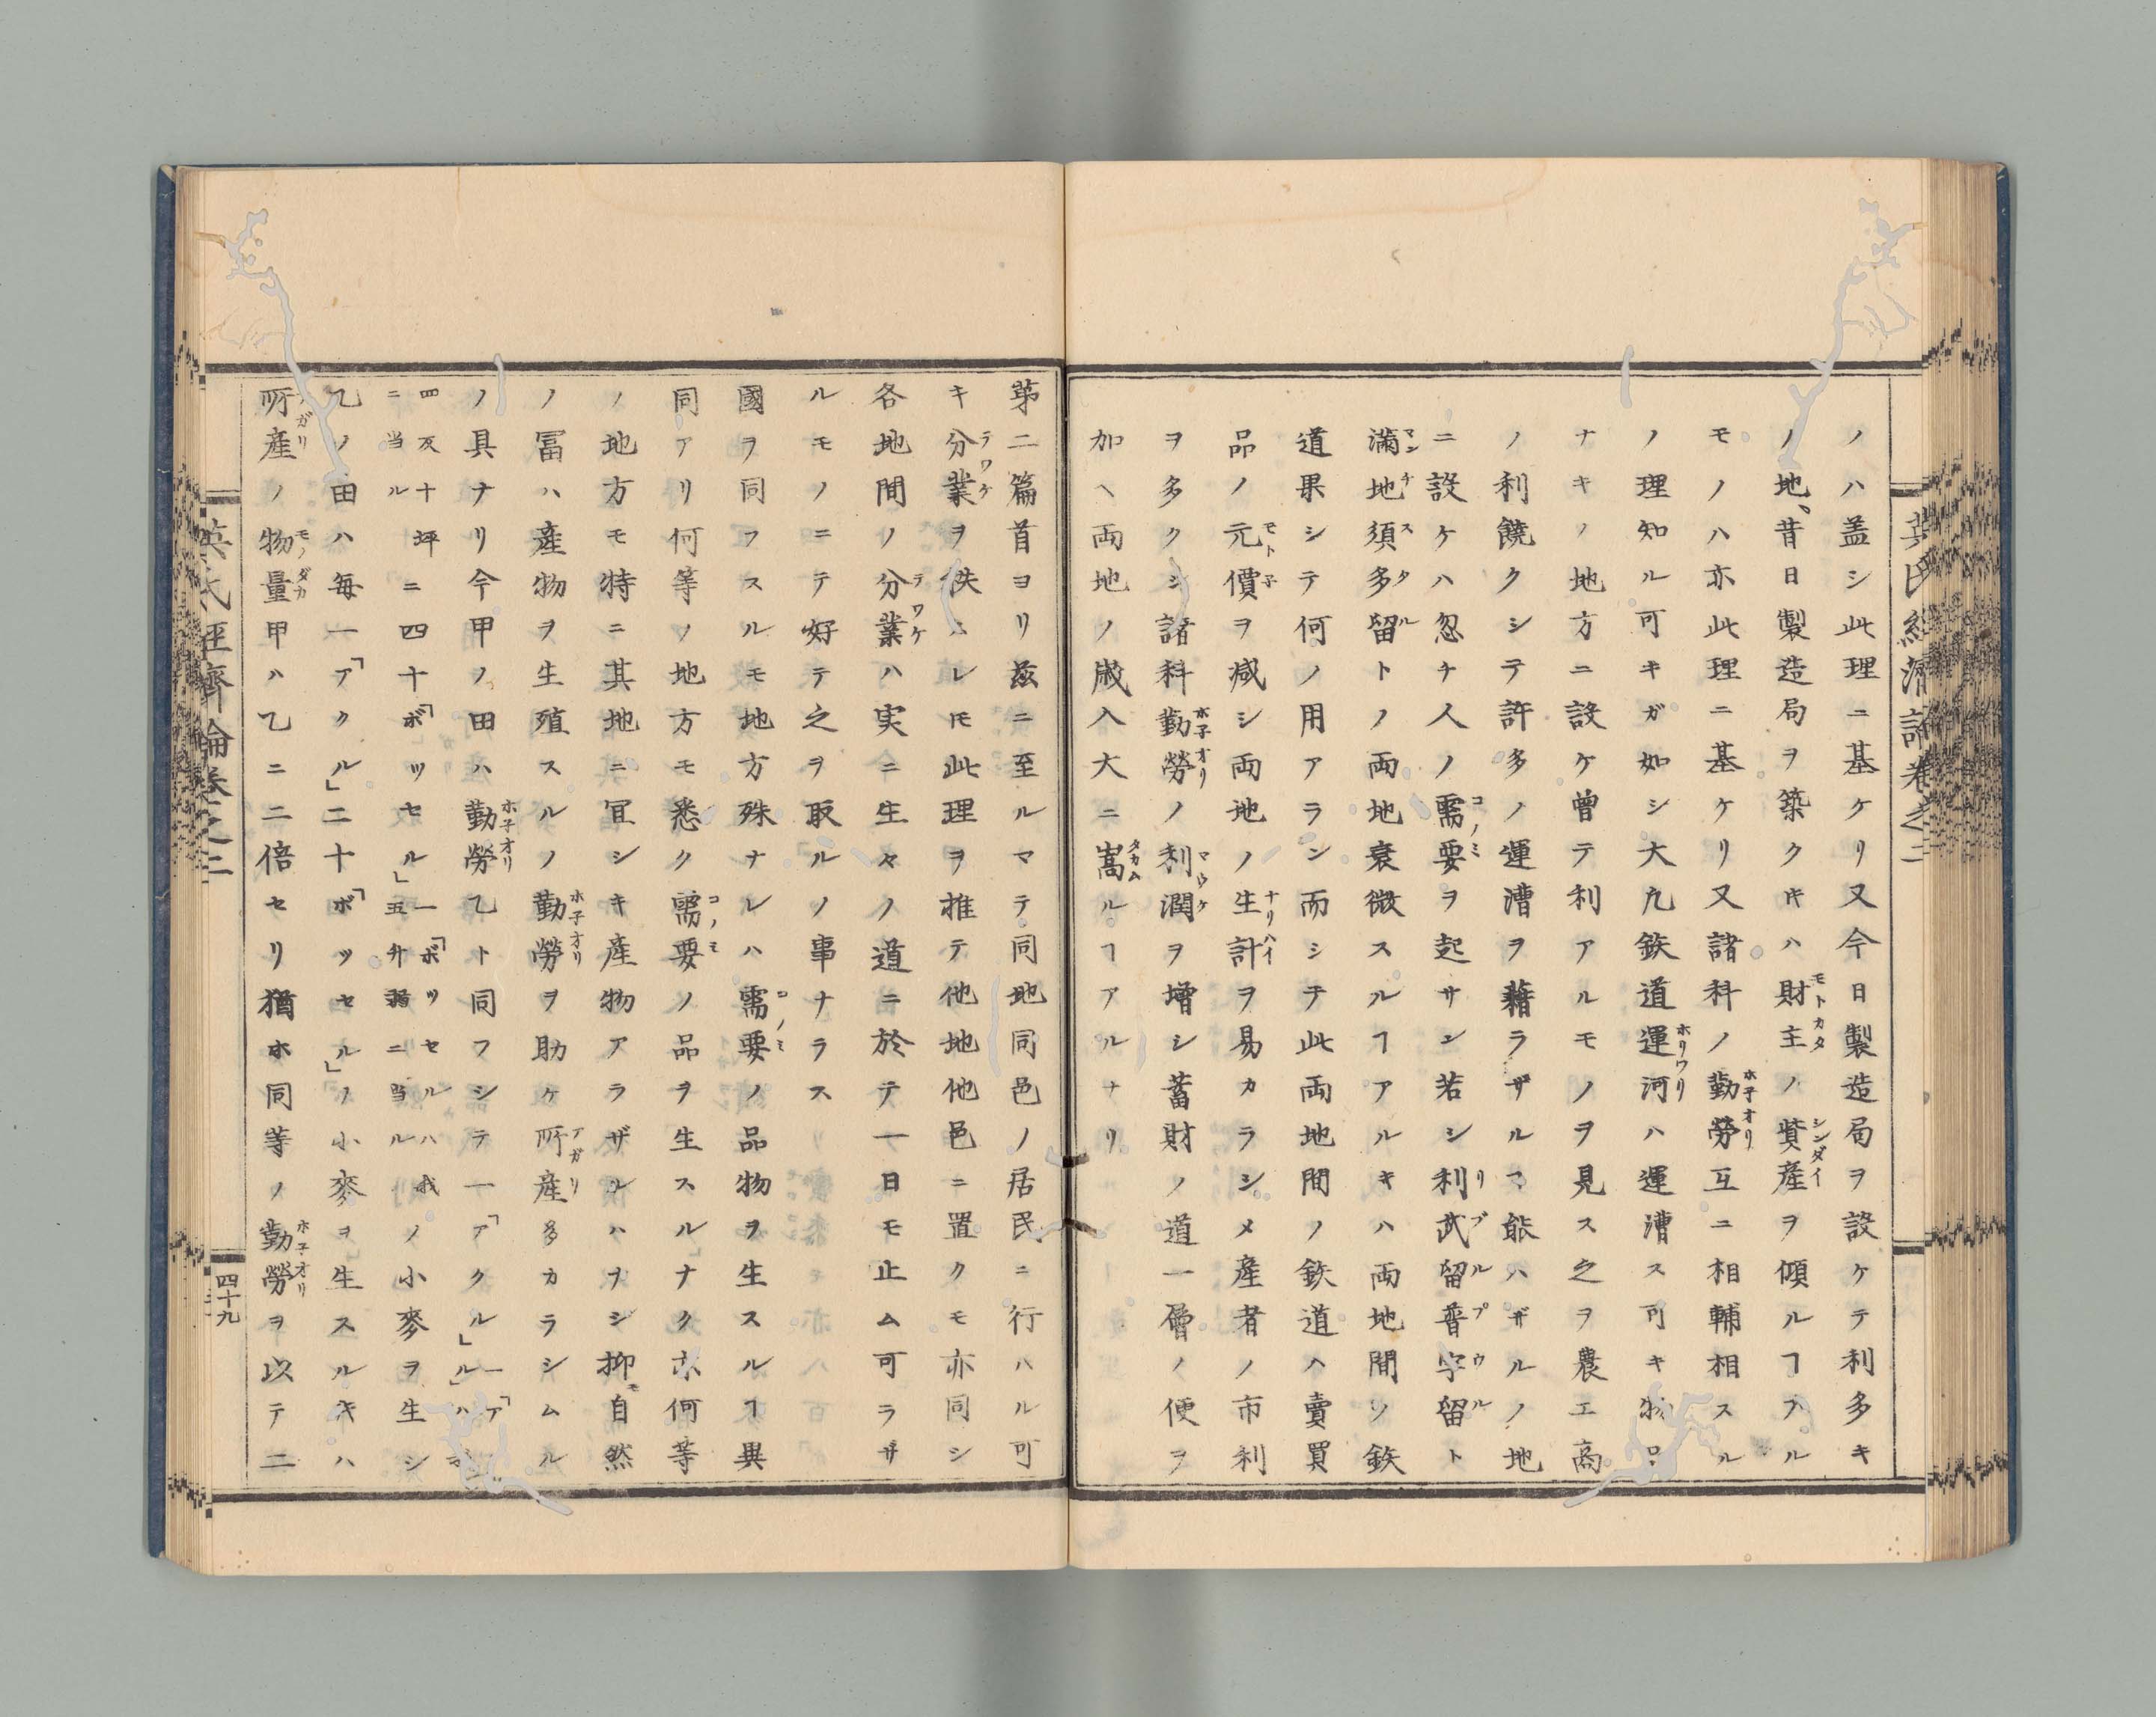 ノハ盖シ此理ニ基ケリ又今日製造局ヲ設ケテ利多キ
ノ地、昔日製造局ヲ築クキハ財主ノ貲産ヲ傾ルヿアル
モノハ亦此理ニ基ケリ又諸科ノ勤勞互ニ相輔相スル
ノ理知ル可キガ如シ大凢鉄道運河ハ運漕ス可キ物品
ナキノ地方ニ設ケ曾テ利アルモノヲ見ス之ヲ農工商
ノ利饒クシテ許多ノ運漕ヲ藉ラザル能ハザルノ地
ニ設ケハ忽ナ人ノ需要ヲ起サン若シ利武留普字留ト
滿地須多留トノ両地衰微スルヿアルキハ両地間ノ鉄
道果シテ何ノ用アラン而シテ此両地間ノ鉄道ハ賣買
品ノ元價ヲ減シ両地ノ生計ヲ易カラシメ産者ノ市利
ヲ多クシ諸科勤勞ノ利潤ヲ増シ蓄財ノ道一層ノ便ヲ
加ヘ両地ノ歳入大ニ嵩ルヿアルナリ
苐二篇首ヨリ茲ニ至ルマテ同地同邑ノ居民ニ行ハル可
キ分業ヲ佚ニレモ此理ヲ推テ他地他邑ニ置クモ亦同シ
各地間ノ分業ハ実ニ生々ノ道ニ於テ一日モ止ム可ラザ
ルモノニテ好テ之ヲ取ルノ事ナラス
國ヲ同フスルモ地方殊ナレハ需要ノ品物ヲ生スルヿ異
同アリ何等ノ地方モ悉ク需要ノ品ヲ生スルナク亦何等
ノ地方モ特ニ其地ニ冝シキ産物アラザルハナシ抑モ自然
ノ冨ハ産物ヲ生殖スルノ勤勞ヲ助ケ所産多カラシムル
ノ具ナリ今甲ノ田ハ勤勞乙ト同フシテ一「アクル」一「アクル」ハ
四反十坪ニ当ル ニ四十「ボツセル」一「ボツセル」ハ我五升弱ニ当ル ノ小麥ヲ生シ
乙ノ田ハ毎一「アクル」二十「ボツセル」ノ小麥ヲ生スルキハ
所産ノ物量甲ハ乙ニ二倍セリ猶ホ同等ノ勤勞ヲ以テ二
英氏経濟論卷之二
四十九